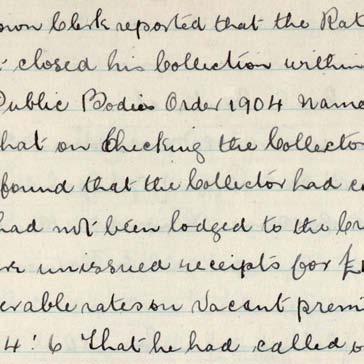 own Clerk reported that the Rat
closed his Collection within
Public Bodies Order 1904 Name
hat on Checking the Collector
found that the Collector had co
had not been lodged to the Cr
re unissued receipts for £
erable rates on Vacant premi
4 : 6 That he had called